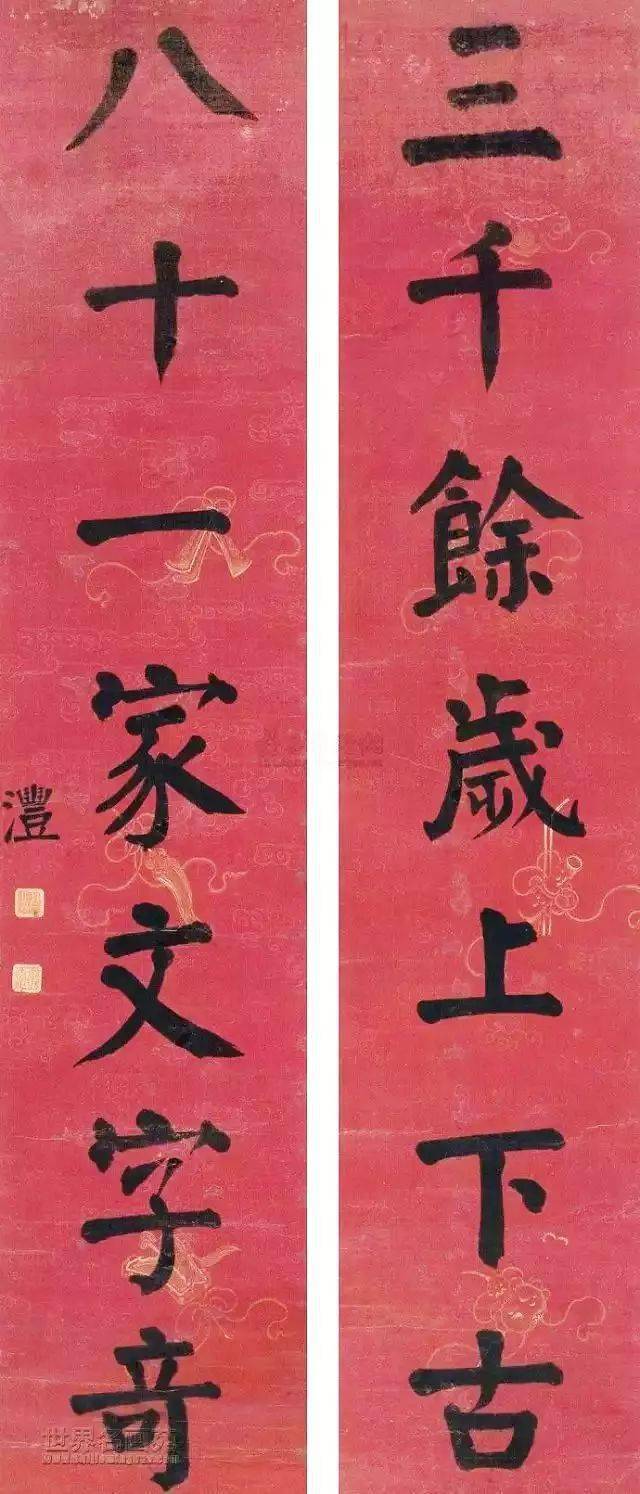 三千餘歲上下古
八十一家文字奇
灃
世界名画苑